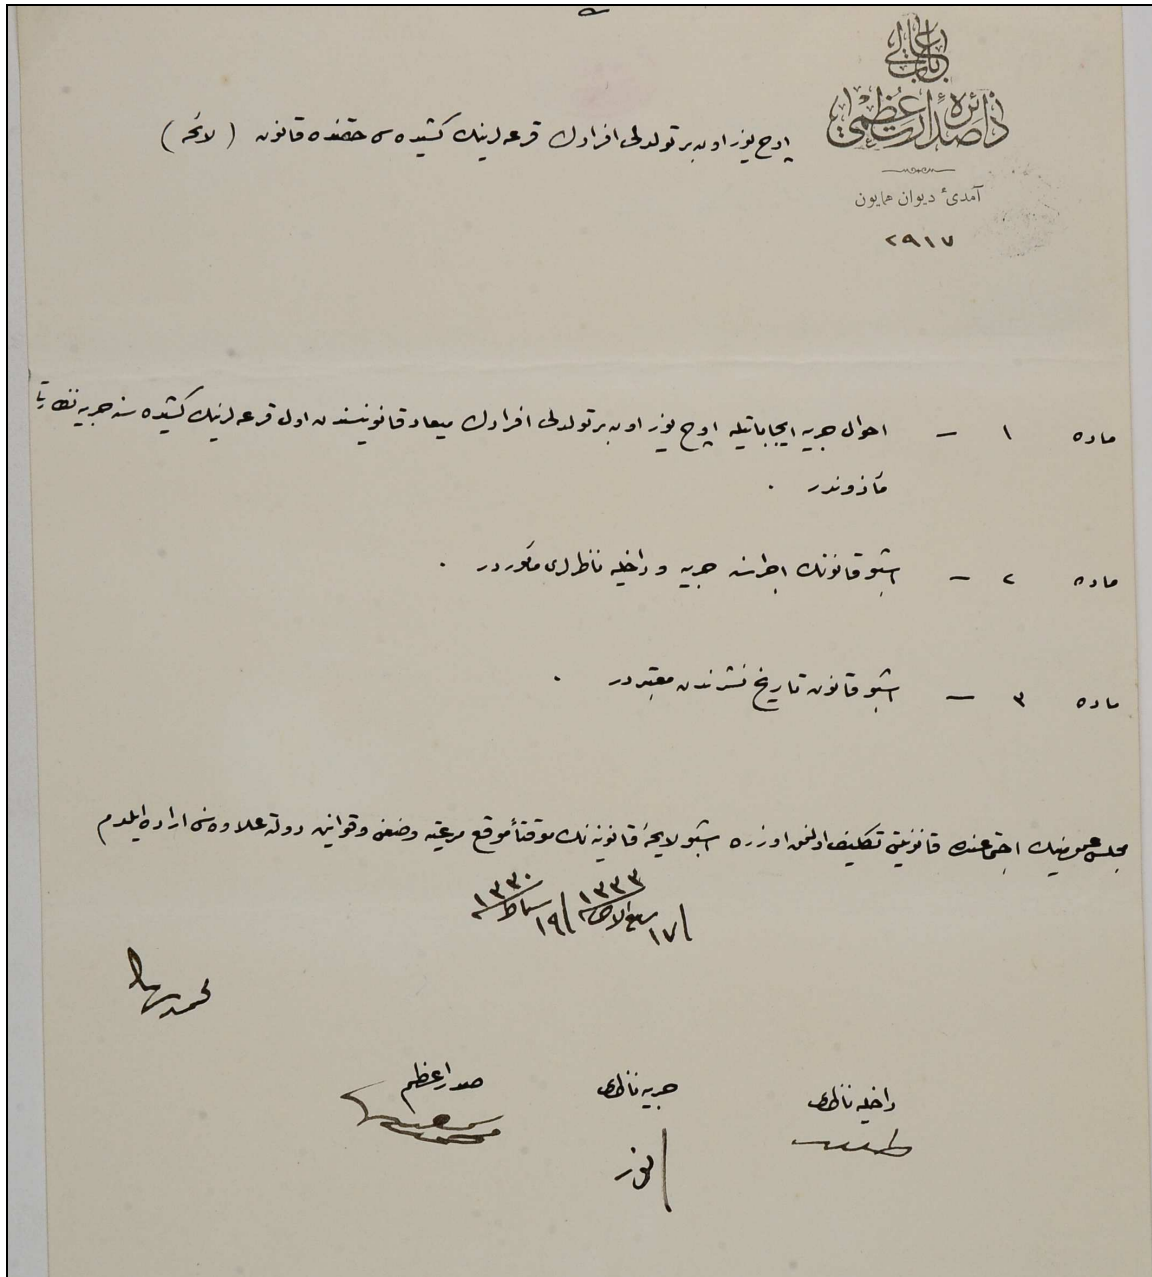 باب عالی
دائرهٔ صدارت عظمی
آمدیٔ دیوان همایون
٢٩١٧
اوچ یوز اون بر تولدلی افرادك قرعه‌لرینك كشیده‌سی حقنده قانون ( لائحه )
ماده ١ — احوال حربیه ایجاباتیله اوچ یوز اون بر تولدلی افرادك میعاد قانونیسندن اول قرعه‌لرینك كشیده‌سنه حربیه نظارتی
مأذوندر .
ماده ٢ — اشبو قانونك اجراسنه حربیه و داخلیه ناظرلری مأموردر .
ماده ٣ — اشبو قانون تاریخ نشرندن معتبردر .
مجلس عمومینك اجتماعنده قانونیتی تكلیف اولنمق اوزره اشبو لایحهٔ قانونیه‌نك موقتاً موقع مرعیته وضعنی و قوانین دولته علاوه‌سنی اراده ایلدم
١٧ ربیع الاخر ١٣٣٣ / ١٩ شباط ١٣٣٠
محمد رشاد
داخلیه ناظری حربیه ناظری صدر اعظم
طلعت انور محمد سعید